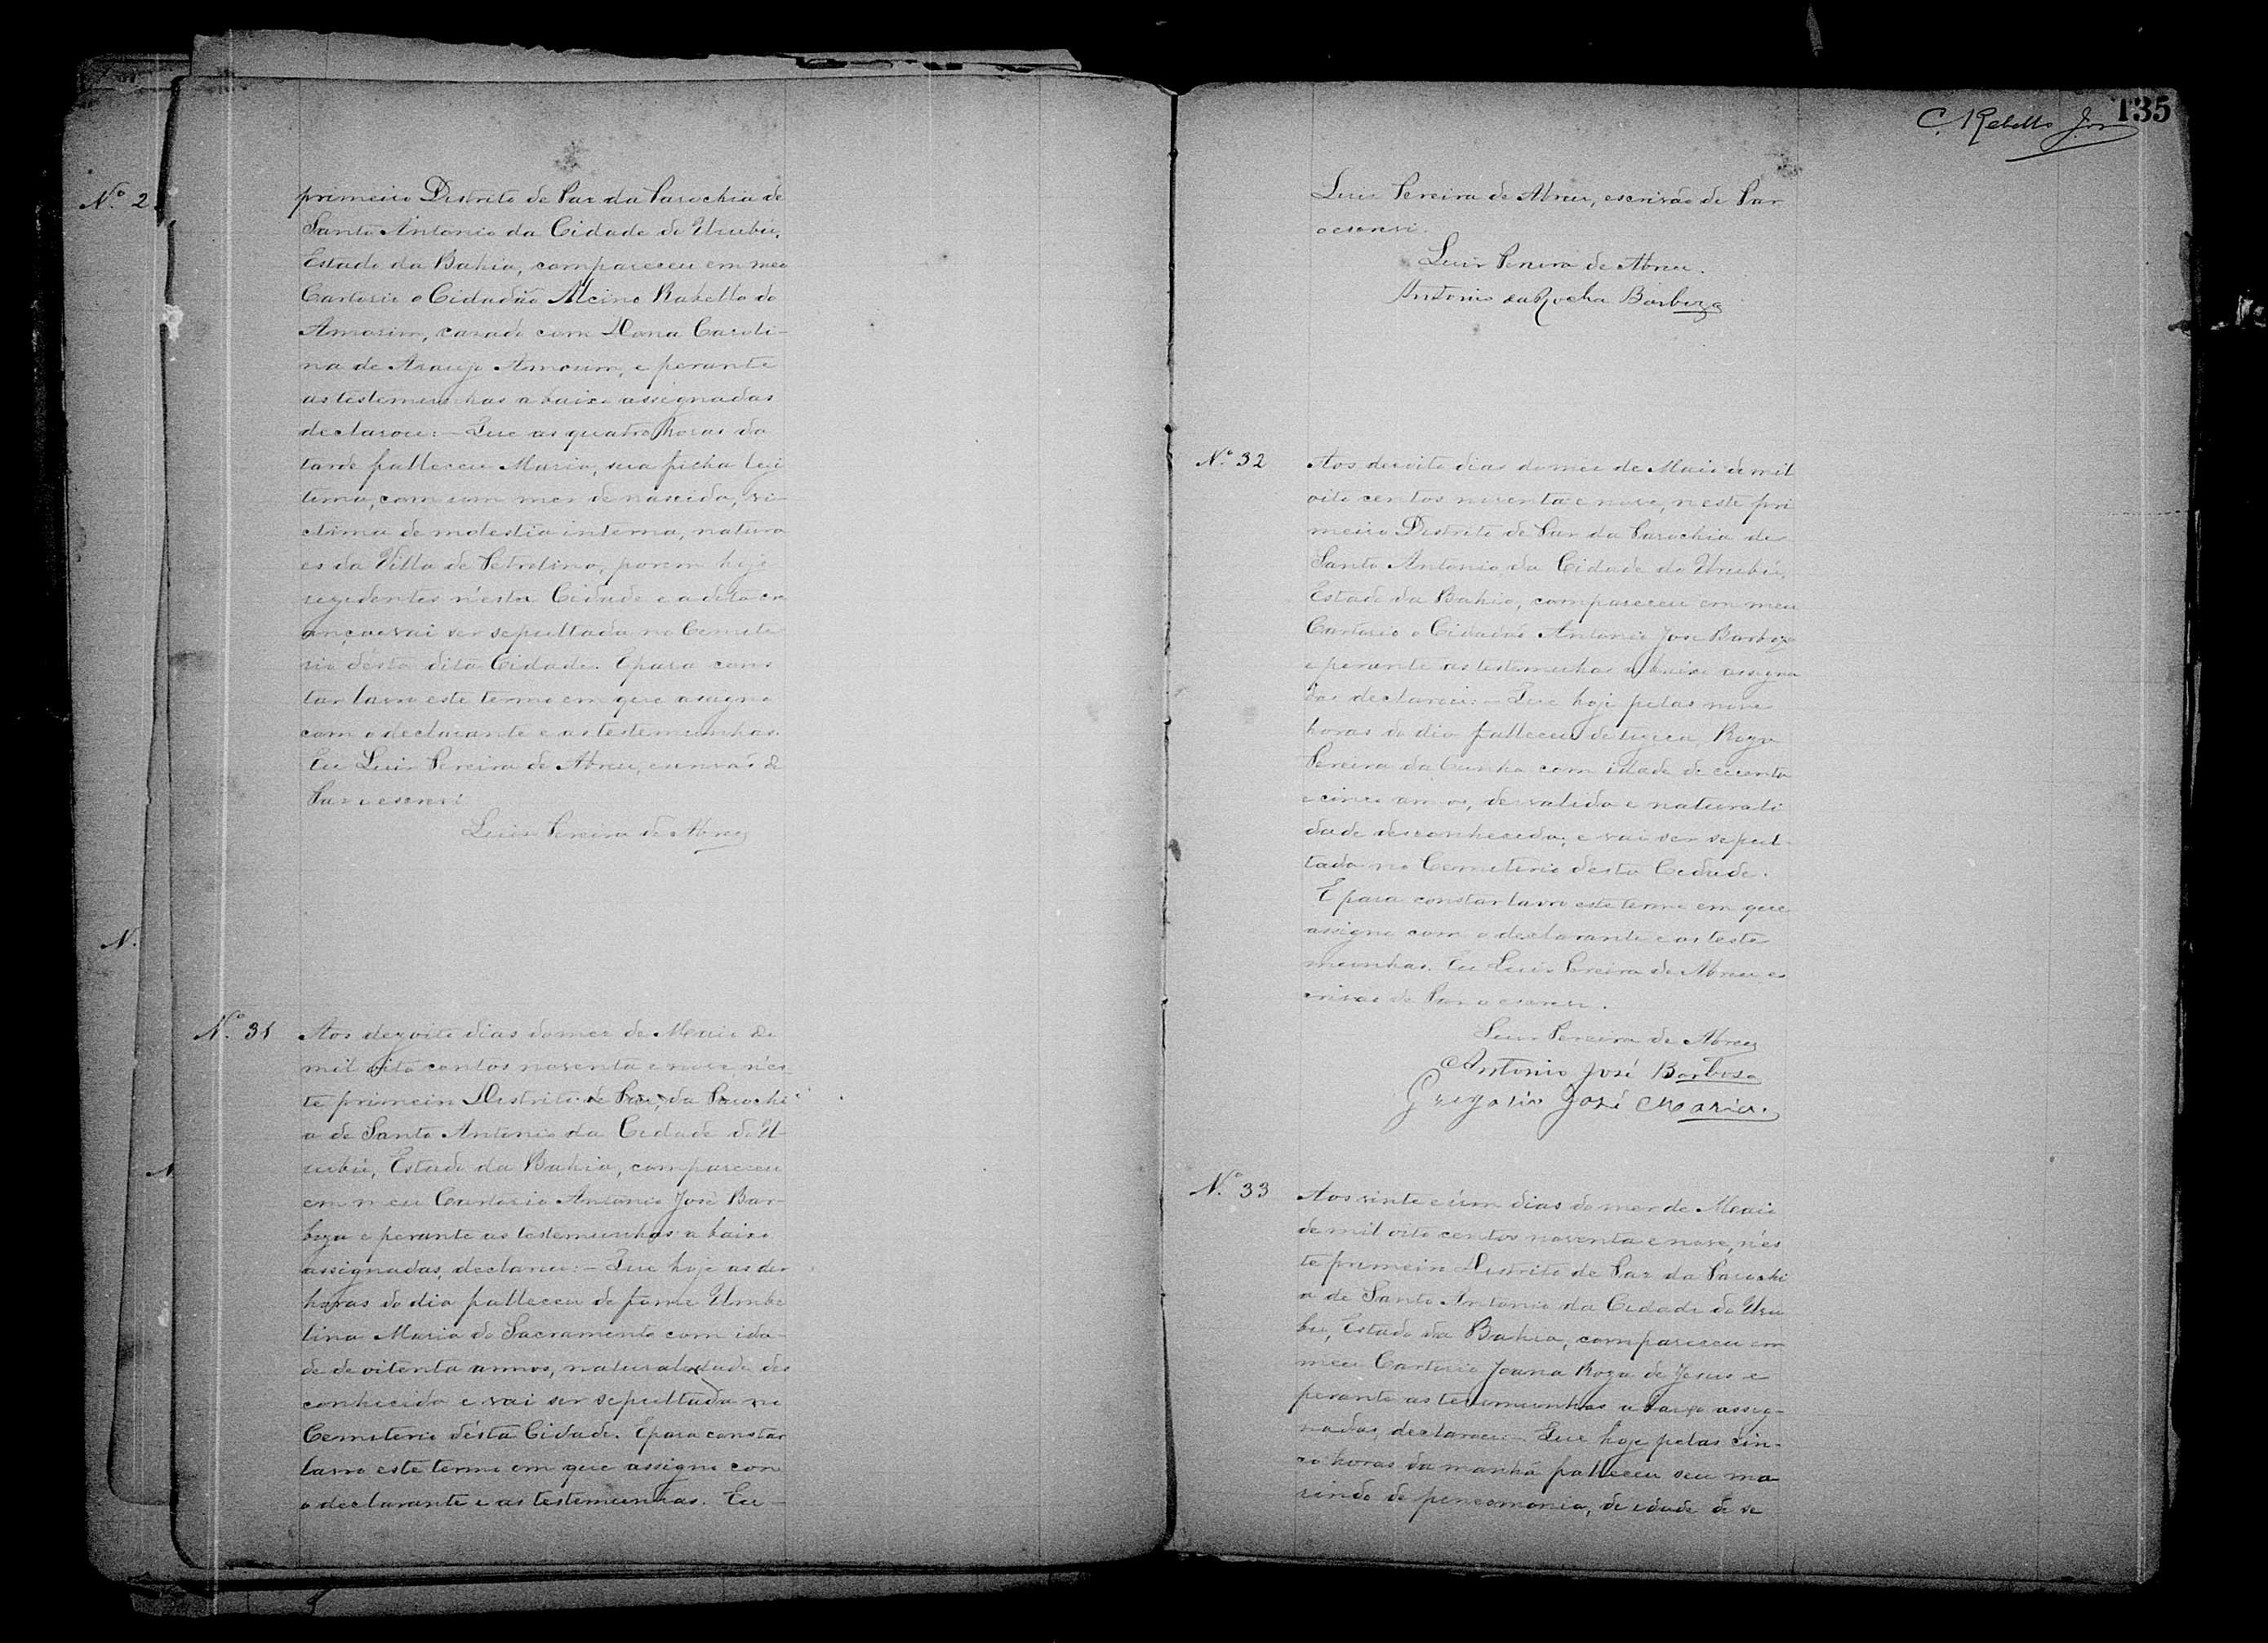 Nº 2
primeiro Distrito de Paz da Parochia de
Santo Antonio da Cidade do Urubú,
Estado da Bahia, compareceu em meu
Cartorio o Cidadão Alcino Rabello do
Amorim, casado com Dona Caroli-
na de Araujo Amorim, e perante
as testemunhas abaixo assignadas
declarou: - Que as quatro horas da
tarde falleceu Maria, sua filha legi
tima, com um mez de nascida, vi-
ctima de molestia interna, natura
es da Villa de Petrolina, porem hoje
rezidentes n'esta Cidade e a dita cri
ança vai ser sepultada no Cemite
rio désta dita Cidade. E para cons
tar lavro este termo em que assigno
com o declarante e as testemunhas.
Eu Luis Pereira de Abreu, escrivão de
Paz o escrevi
Luis Pereira de Abreu
N.
N
Nº 31
Aos dezoito dias do mez de Maio de
mil oito centos noventa e nove n'es
te primeiro Distrito de Paz, da Parochi
a de Santo Antonio da Cidade do U-
rubú, Estado da Bahia, compareceu
em meu Cartorio Antonio José Bar-
boza e perante as testemunhas abaixo
assignadas, declarou: - Que hoje as dez
horas do dia falleceu de fome Umbe
lina Maria do Sacramento com ida-
de de oitenta annos, naturalidade des
conhecida e vai ser sepultada no
Cemiterio désta Cidade. E para constar
lavro este termo em que assigno com
o declarante e as testemunhas. Eu
C. Rebello Jor
135
Luis Pereira de Abreu, escrivão de Paz
o escrevi.
Luis Pereira de Abreu.
Antonio da Rocha Barboza
Nº 32
Aos dezoito dias do mez de Maio de mil
oito centos noventa e nove, n'este pri
meiro Distrito de Paz da Parochia de
Santo Antonio da Cidade do Urubú,
Estado da Bahia, compareceu em meu
Cartorio o Cidadão Antonio José Barboza
e perante as testemunhas abaixo assigna
das declarou: - Que hoje pelas nove
horas do dia falleceu Roza
Pereira da Cunha com idade de
e cinco annos, desvalida e naturali
dade desconhecida, e vai ser sepul-
tada no Cemiterio desta Cidade.
E para constar lavro este termo em que
assigno com o declarante e as teste
munhas. Eu Luis Pereira de Abreu es
crivão de Paz o escrevi.
Luis Pereira de Abreu
Antonio José Barboso
Gregorio José Maria.
Nº 33
Aos vinte e úm dias do mez de Maio
de mil oito centos noventa e nove, n'es
te primeiro Distrito de Paz da Parochi
a de Santo Antonio da Cidade do Uru
bú, Estado da Bahia, compareceu em
meu Cartorio Joana Roza de Jesus e
perante as testemunhas abaixo assig-
nadas, declarou: - Que hoje pelas cin-
co horas da manhã falleceu seu ma
rido de pneomonia, de idade de se